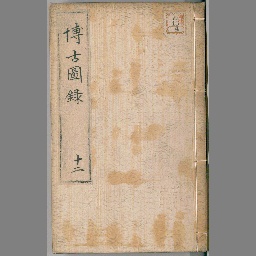 博古圖錄
十二